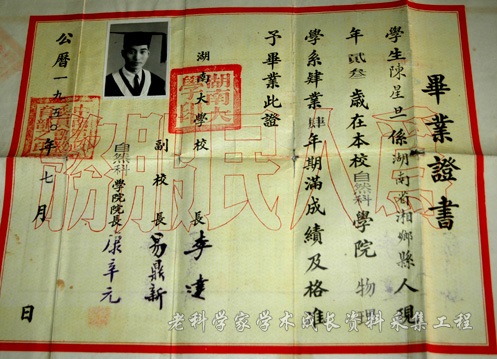 畢業證書
學生陳星旦係湖南省湘鄉縣人現
年貳叁歲在本校自然科學院物理
學系肄業肆年期滿成績及格准
予畢業此證
湖南大學校長李達
副校長易鼎新
自然科學院院長康辛元
公曆一九五〇年七月日
湖南大學印
為人民服務
老科学家学术成长资料采集工程